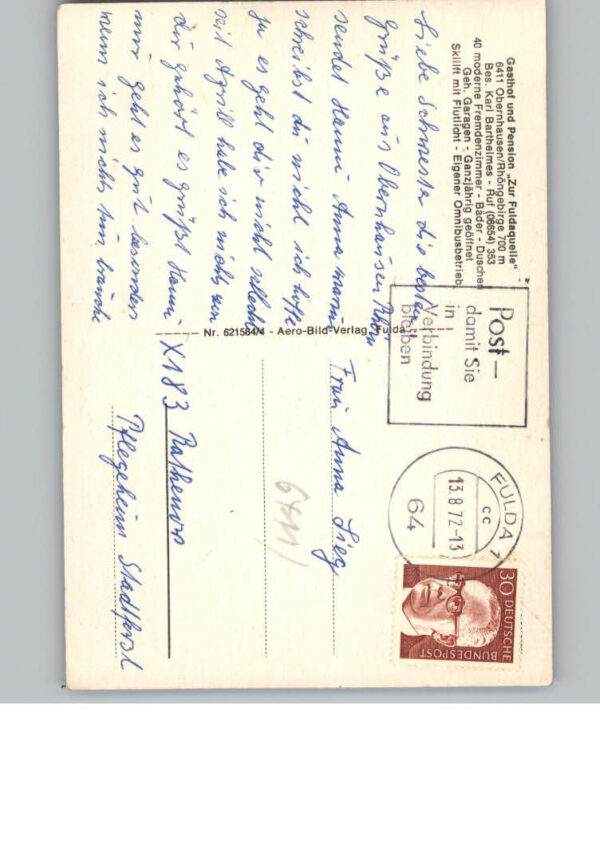 Gasthof und Pension „Zur Fuldaquelle"
6411 Obernhausen/Rhöngebirge 700 m
Bes. Karl Barthelmes - Ruf (06654) 353
40 moderne Fremdenzimmer - Bäder - Duschen
Geh. Garagen - Ganzjährig geöffnet
Skilift mit Flutlicht - Eigener Omnibusbetrieb
Liebe Schwester die besten
Grüße aus Obernhausen Rhön
sendet Hanni Anna warum
schreibst du nicht ich hoffe
ja es geht dir nicht schlecht
seit Aprill habe ich nichts von
dir gehört es grüßt Hanni
mir geht es gut besonders
wenn ich nichts tun brauche
Nr. 621584/4 - Aero-Bild-Verlag, Fulda
Post—
damit Sie
in
Verbindung
bleiben
FULDA 1
cc
13.8.72-13
64
30 DEUTSCHE
BUNDESPOST
Frau Anna Sieg
X183 Rathenow
Pflegeheim Stadtforst